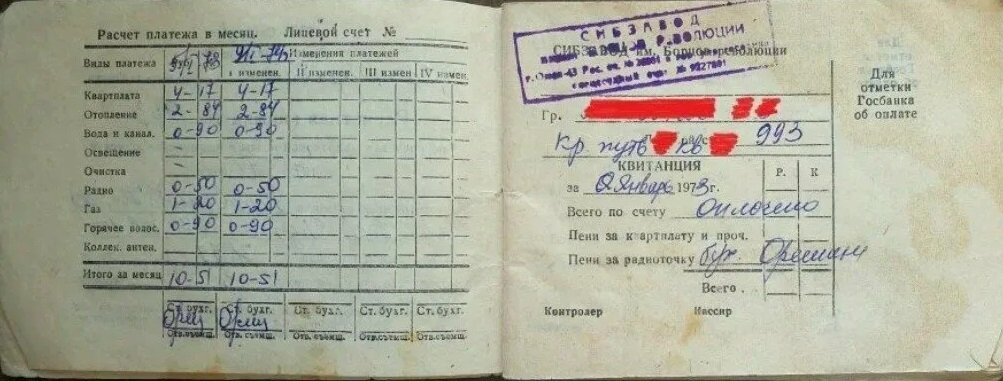 Расчет платежа в месяц. Лицевой счет №
Виды платежа
Изменения платежей
I изменен. II изменен. III измен. IV измен.
Квартплата 4-17 4-17
Отопление 2-84 2-84
Вода и канал. 0-90 0-90
Освещение
Очистка
Радио 0-50 0-50
Газ 1-20 1-20
Горячее водос. 0-90 0-90
Коллек. антен.
Итого за месяц 10-51 10-51
Ст. бухг. Ст. бухг. Ст. бухг. Ст. бухг. Ст. бухг.
Отв.съемщ. Отв.съемщ. Отв.съемщ. Отв.съемщ. Отв.съемщ.
СИБЗАВОД
РЕВОЛЮЦИИ
СИБЗАВОД им. Борцов революции
г. Омск-43
Гр.
Кр. путь кв 993
КВИТАНЦИЯ Р. К
за Январь 1973г.
Всего по счету Оплачено
Пени за квартплату и проч.
Пени за радиоточку бух.
Всего.
Контролер Кассир
Для
отметки
Госбанка
об оплате